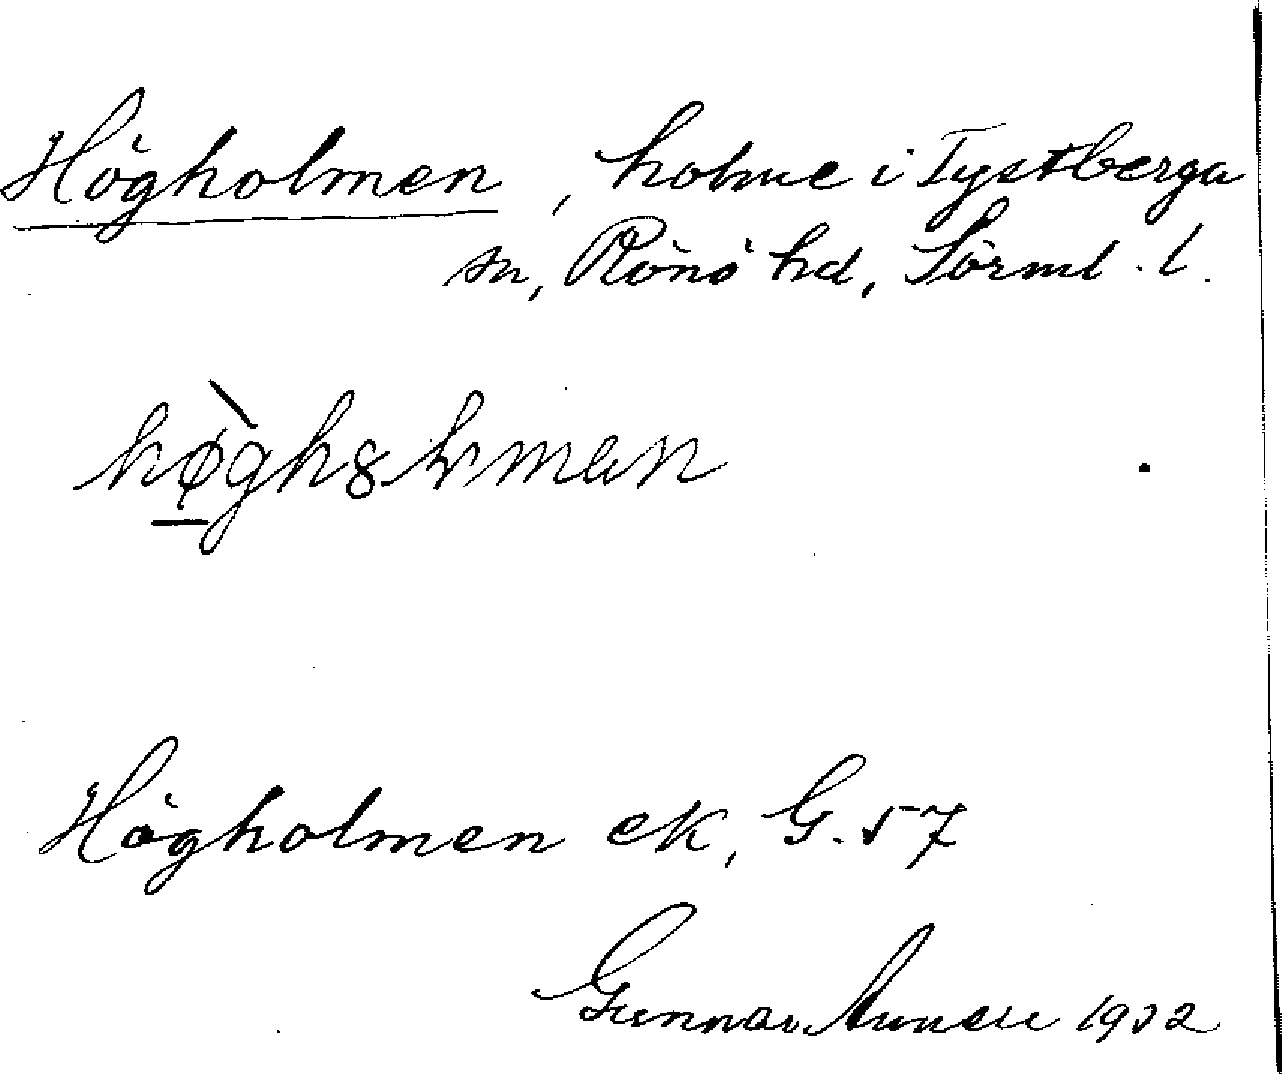 Högholmen, holme i Tystberga
sn, Rönö hd, Sörml. l.
Högholmen ek, G. 57
Gunnar 1932